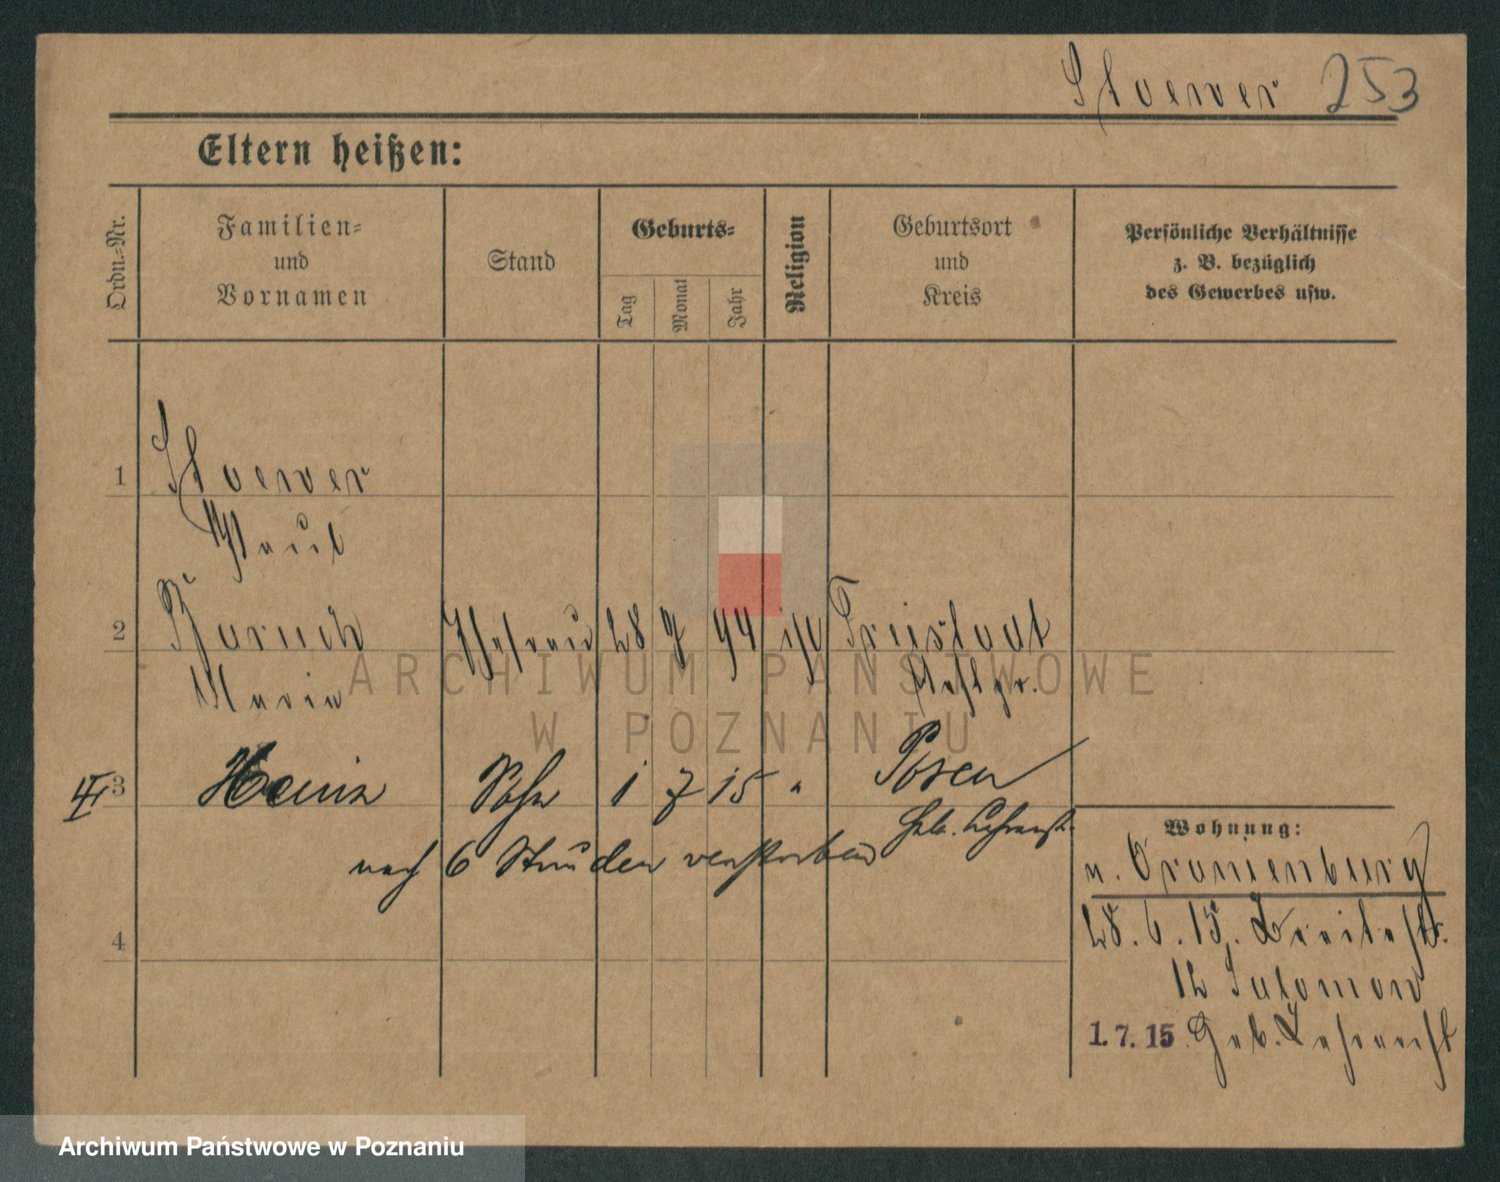 Stoewer 253
Eltern heißen:
Ordn.=Nr.
Familien=
und
Vornamen
Stand
Geburts=
Tag
Monat
Jahr
Religion
Geburtsort
und
Kreis
Persönliche Verhältnisse
z. B. bezüglich
des Gewerbes usw.
1 Stoewer
Paul
2 Baruch Ehefrau 28 9 94 Freistadt
Maria Westpr.
3 Heinz Sohn 1 7 15 " Posen
Geb. Lehranst.
nach 6 Stunden verstorben
4
Wohnung:
n. Oranienburg
28. 6. 15. Breitestr.
12 Salomon
1. 7. 15 Geb. Lehranst
ARCHIWUM PAŃSTWOWE
W POZNANIU
Archiwum Państwowe w Poznaniu